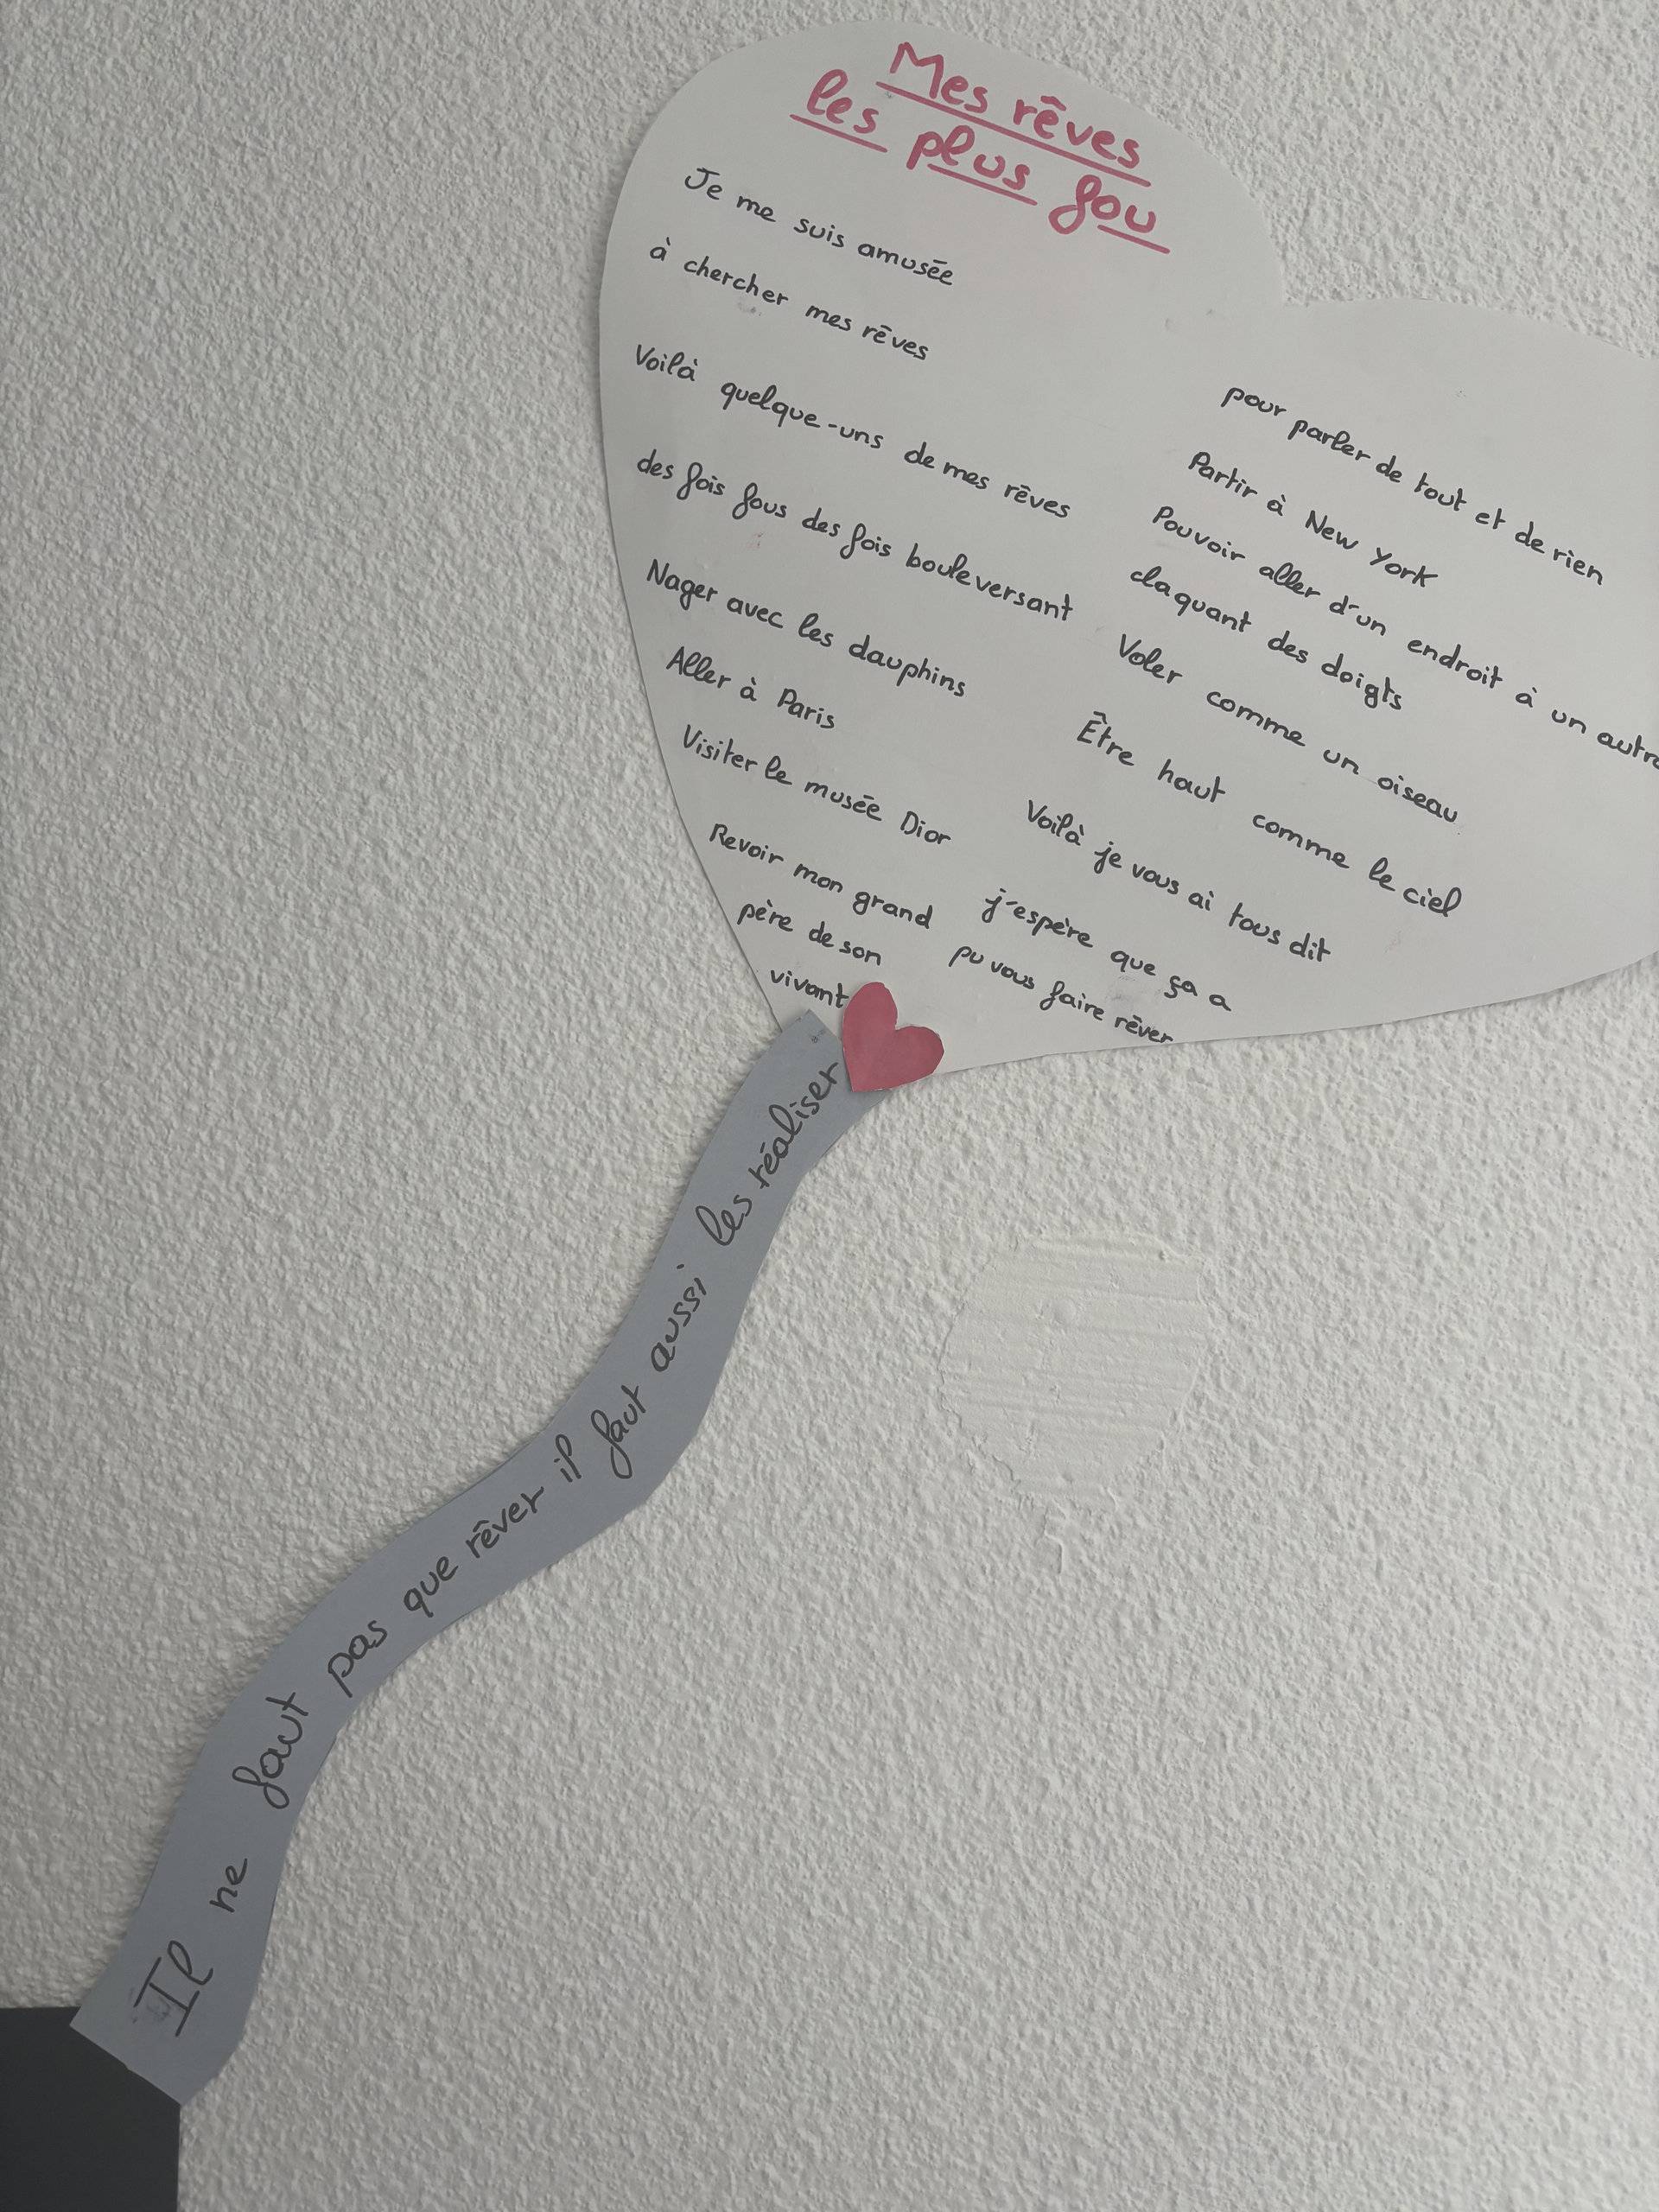 Mes rêves
les plus fou
Je me suis amusée
à chercher mes rêves
Voilà quelque-uns de mes rêves
des fois fous des fois bouleversant
Nager avec les dauphins
Aller à Paris
Visiter le musée Dior
Revoir mon grand
père de son
vivant
pour parler de tout et de rien
Partir à New York
Pouvoir aller d'un endroit à un autre
claquant des doigts
Voler comme un oiseau
Être haut comme le ciel
Voilà je vous ai tous dit
j'espère que ça a
pu vous faire rêver
Il ne faut pas que rêver il faut aussi les réaliser